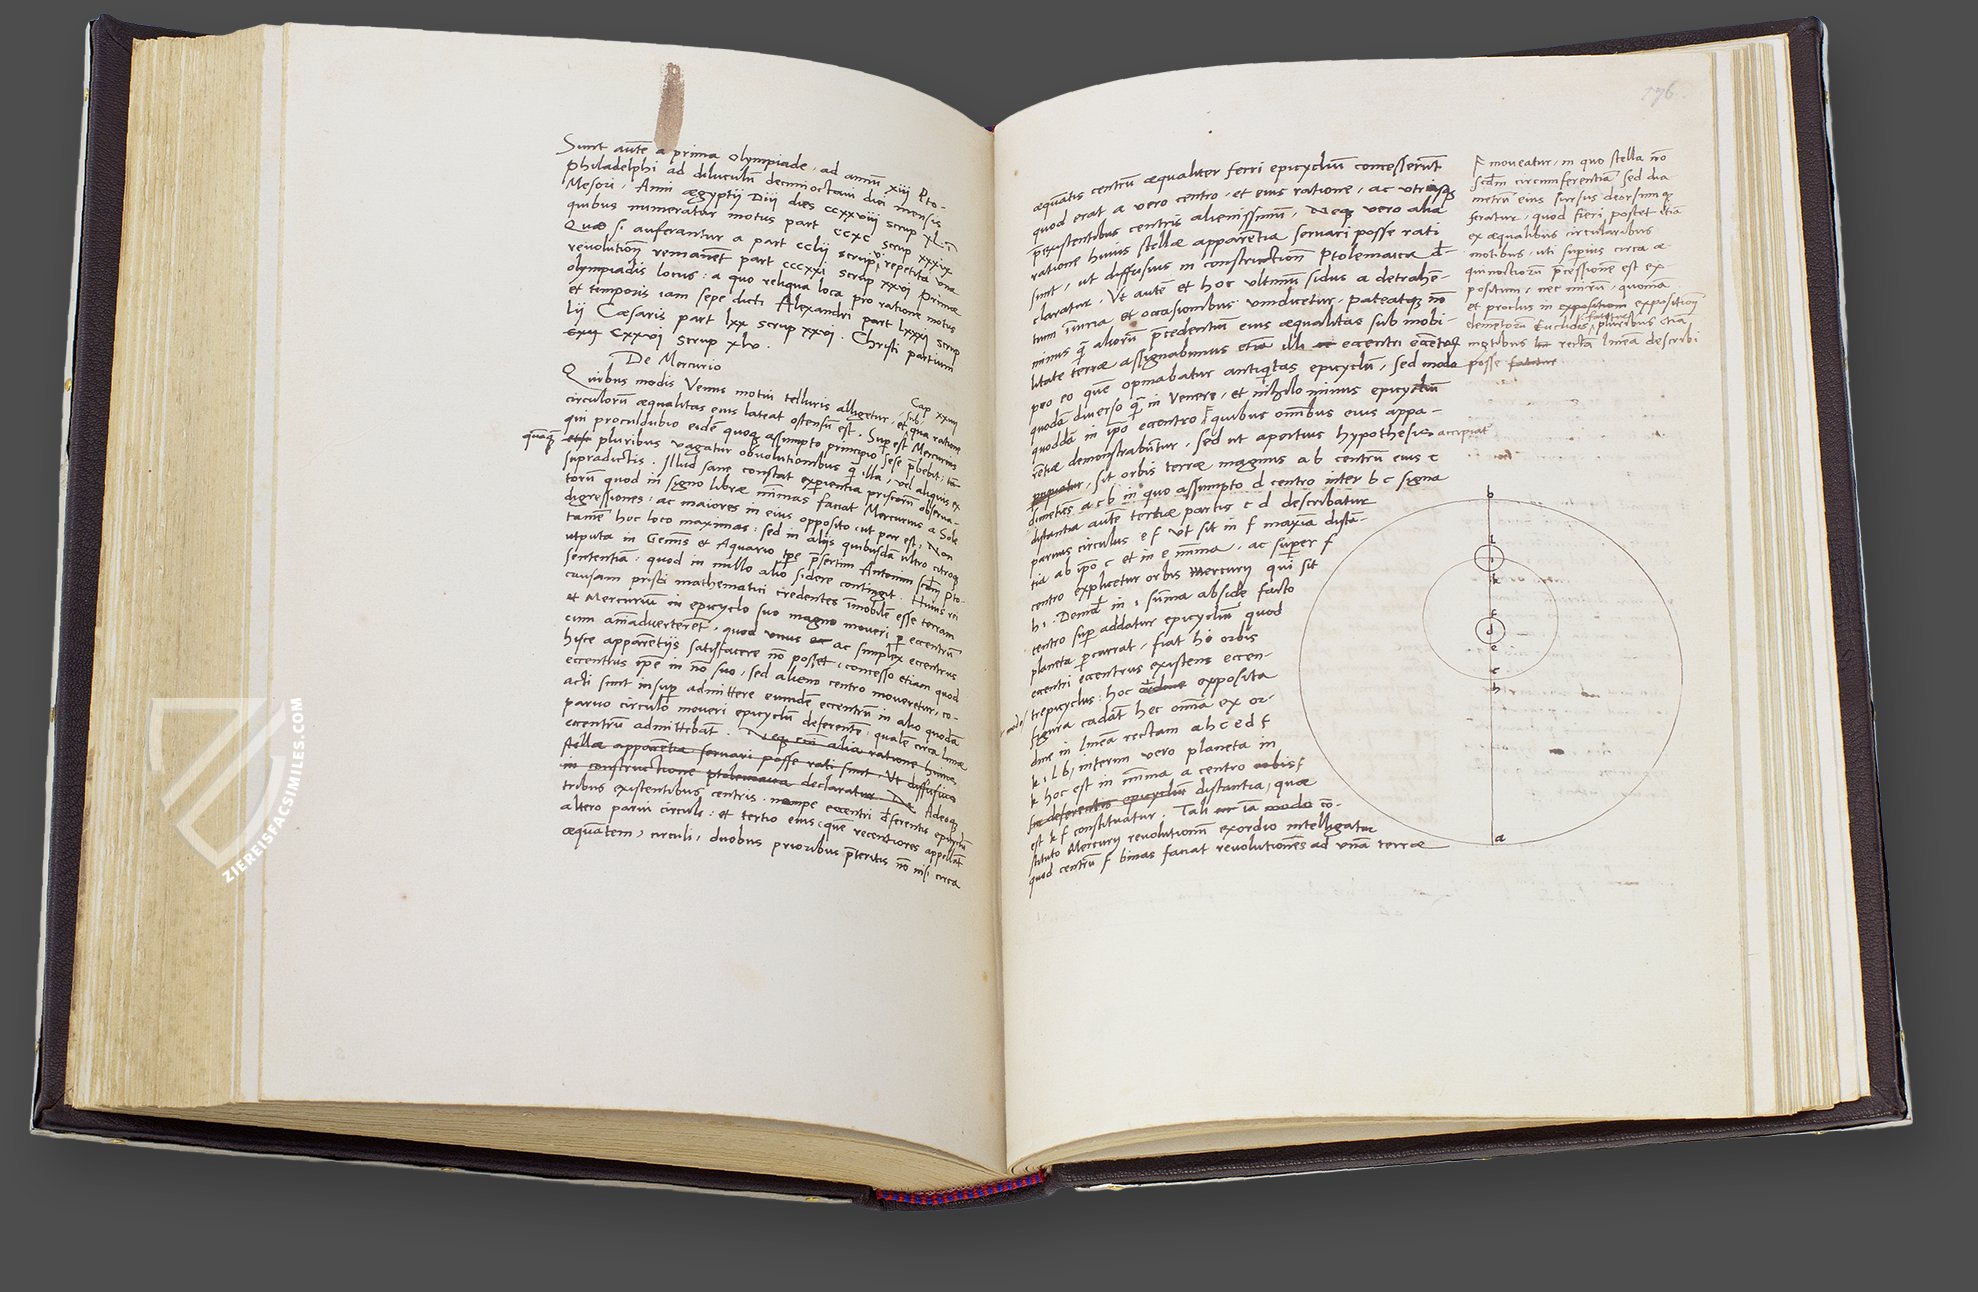 Sunt autē a prima olympiade, ad annū xiij Pto-
Philadelphi ad diluculū decimioctaui diei mensis
Mesori, Anni ægyptij Diij dies ccxxviij scrup xl:
quibus numeratur motus part ccxc scrup xxxix
Quæ si auferantur a part cclij scrup, repetita vna
reuolutioñ remanēt part cccxxi scrup xxvj Primæ
olympiadis locus: a quo reliqua loca pro ratione motus
et temporis iam sepe dicti Alexandri part lxxxj scrup
lij Cæsaris part lxx scrup xxvj. Christi partium
cxxvi scrup xlv.
De Mercurio
Cap xxvij
Quibus modis Venus motui telluris alligetur, et sub qua ratione
circulorū æqualitas eius lateat ostensū est. Supest Mercurius
qui proculdubio eidē quoq assumpto principio sese p̄bebit, tā-
quāqȝ
etsi pluribus vagatur obuolutionibus q̄ illa, vel aliquis ex
supradictis. Illud sane constat experientia priscorū obserua-
torū quod in signo libræ minimas faciat Mercurius a Sole
digressiones: ac maiores in eius opposito, ut par est. Non
tamē hoc loco maximas: sed in alijs quibusdā ultro citroq
utputa in Gemīs et Aquario tpe p̄sertim Antonini scdm Pto-
sententiā: quod in nullo alio sidere contingit. Huius rei
causam prisci mathematici credentes imobilē esse terram
et Mercuriū in epicyclo suo magno moueri p̄ eccentrū
cum aīaduerterēt, quod vnus ac simplex eccentrus
hisce apparētijs satisfacere nō posset, concesso etiam quod
eccentrus ip̄e in nō suo, sed alieno centro moueretur, co-
acti sunt insup̄ admittere eumdē eccentrū in alio quodā
paruo circulo moueri epicyclū deferentē: qualē circa lunæ
eccentrū admittebāt. Neq eni alia ratione huius
stellæ apparētia seruari posse rati sunt, Ut diffusius
in constructione ptolemaica declaratur Adeoqȝ
tribus existentibus centris, nempe eccentri deferentis epicyclū
altero parui circuli: et tertio eius, quē recentiores appellāt
æquātem, circuli, duobus prioribus p̄teritis nō nisi circa
176.
æquātis centrū æqualiter ferri epicyclū concesserūt
quod erat a vero centro, et eius ratione, ac utrisqȝ
p̄existentibus centris alienissimū. Neqȝ vero alia
ratione huius stellæ apparētia seruari posse rati
sunt, ut diffusius in constructioñ Ptolemaica d-
claratur. Ut autē et hoc ultimū sidus a detrahē-
tium iniuria et occasionibus vindicetur, pateatqȝ nō
minus q̄ aliorū p̄cedentiū eius æqualitas sub mobi-
litate terræ assignabimus etiā illi eccentri eccētrū
pro eo quē opinabatur antiqtas epicyclū, sed modo
quodā diuerso q̄ in Venere, et nihilominus epicyclū
quoddā in ip̄o eccentro quibus omībus eius appa-
rētiæ demonstrabūtur. sed ut apertius hypothesis accipiat
sit orbis terræ magnus a b centrū eius c
dimetiēs a c b in quo assumpto d centro inter b c signa
distantia autē tertiæ partis c d describatur
paruus circulus e f Ut sit in f maxīa distā-
tia ab ip̄o c et in e minīa, ac super f
centro explicetur orbis Mercurij qui sit
h i. Deinde in i sūma abside facto
centro sup̄ addatur epicyclū quod
planeta p̄currat. fiat hi orbis
eccentri eccentrus existens eccen-
trepicyclus: hoc modo exposita
figura cadāt hec omīa ex or-
dine in lineā rectam a h c e d f
k i l b, interim vero planeta in
k hoc est in minīma a centro f
distantia, quæ
est k f constituatur. Tali iā cō-
stituto Mercurij reuolutionū exordio intelligatur
quod centrū f binas faciat reuolutiones ad vnā terræ
moueatur, in quo stella nō
scdm circumferentiā sed dia-
metrū eius sursus deorsumqȝ
feratur, quod fieri potest etiā
ex æqualibus circularibus
motibus, uti supius circa æ-
quinoctiorū p̄cessionē est ex-
positum, nec mirū, quoniā
et proclus in expositioñ
elemētorū Euclidis fatetur pluribus etiā
motibus rectā lineā describi
posse
b
l
i
k
f
d
e
c
h
a
ZIEREISFACSIMILES.COM